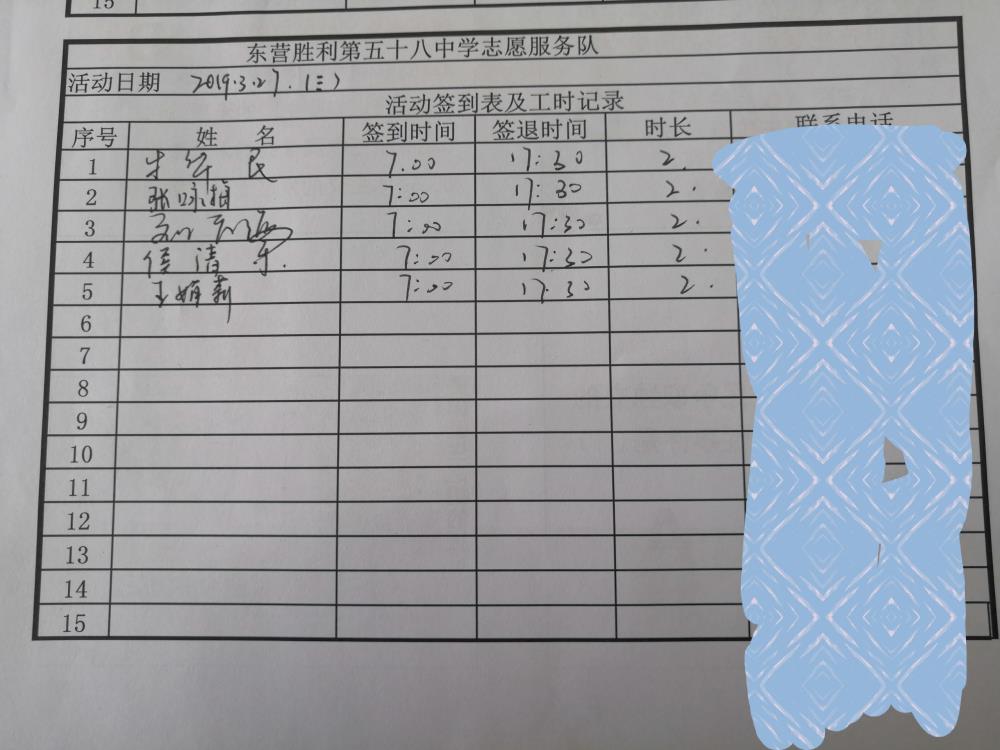 15
东营胜利第五十八中学志愿服务队
活动日期 2019.3.27.(三)
活动签到表及工时记录
序号 姓 名 签到时间 签退时间 时长 联系电话
1 民 7.00 17:30 2.
2 张咏梅 7:00 17:30 2.
3 7:00 17:30 2.
4 侯清乐. 7:00 17:30 2.
5 王娟莉 7:00 17.30 2.
6
7
8
9
10
11
12
13
14
15